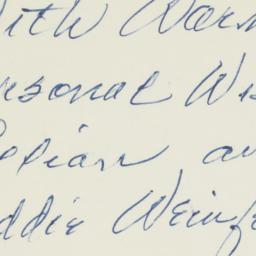 ith Warm
rsonal Wis
llian an
ddie Weinf